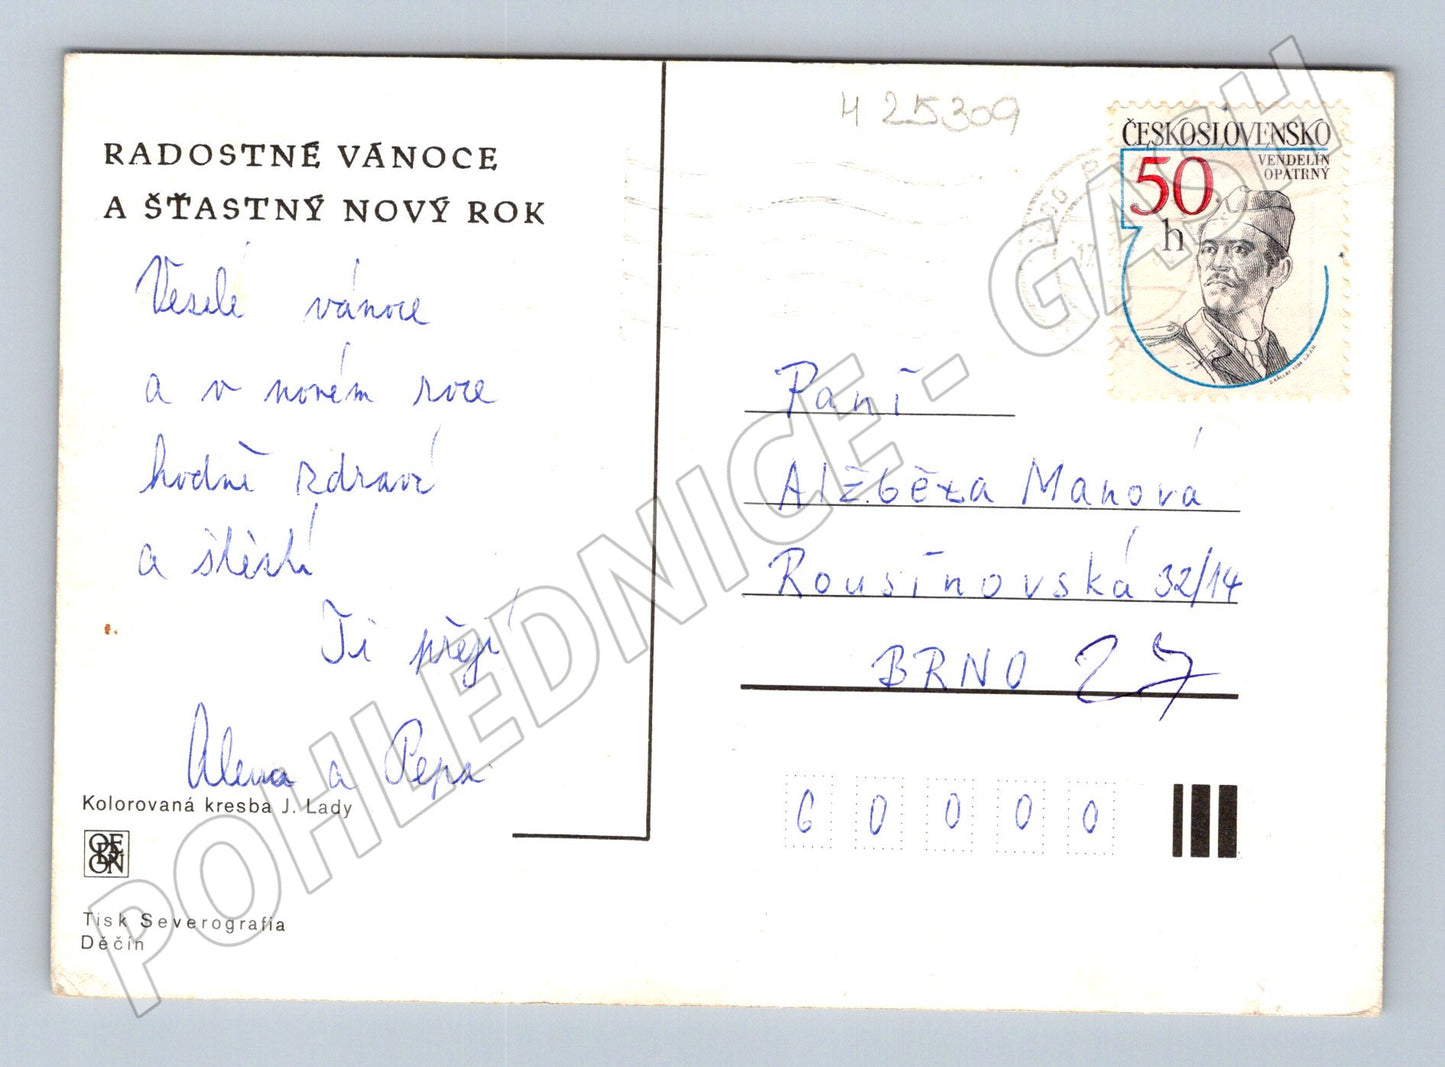 RADOSTNÉ VÁNOCE
A ŠŤASTNÝ NOVÝ ROK
Veselé vánoce
a v novém roce
hodně zdraví
a štěstí
Ti přejí
Alena a Pepa
Kolorovaná kresba J. Lady
ODEON
Tisk Severografia
Děčín
H 25309
ČESKOSLOVENSKO
50
h
VENDELÍN
OPATRNÝ
Paní
Alžběta Manová
Rousínovská 32/14
BRNO 27
60000
POHLEDNICE - GASH